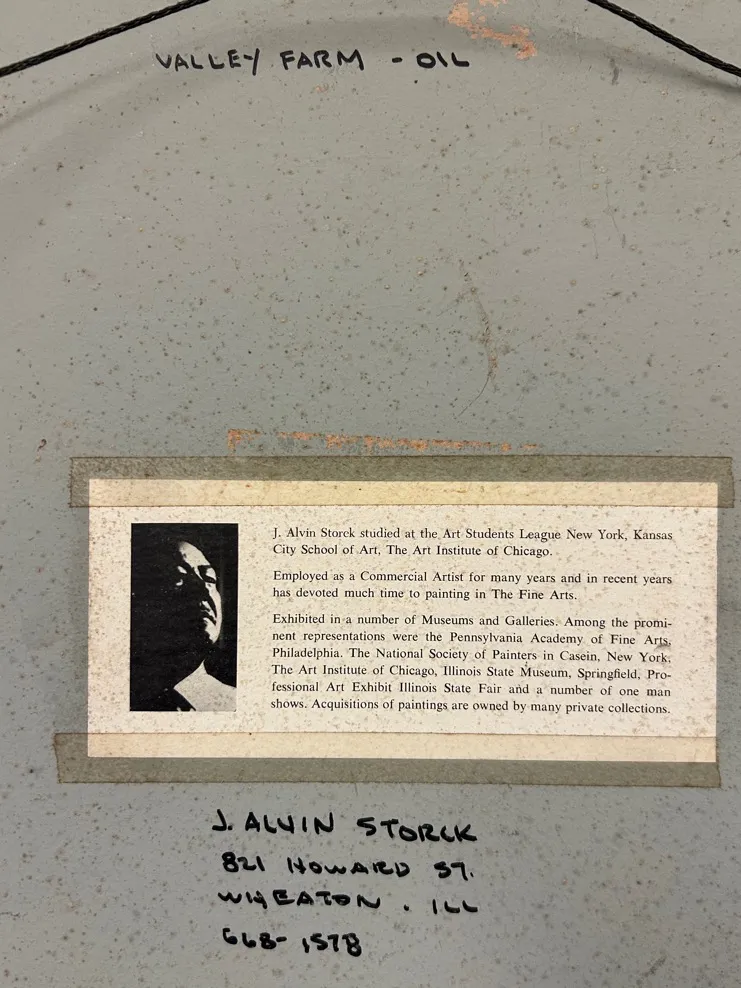 VALLEY FARM - OIL
J. Alvin Storck studied at the Art Students League New York, Kansas
City School of Art, The Art Institute of Chicago.
Employed as a Commercial Artist for many years and in recent years
has devoted much time to painting in The Fine Arts.
Exhibited in a number of Museums and Galleries. Among the promi-
nent representations were the Pennsylvania Academy of Fine Arts,
Philadelphia. The National Society of Painters in Casein, New York,
The Art Institute of Chicago, Illinois State Museum, Springfield, Pro-
fessional Art Exhibit Illinois State Fair and a number of one man
shows. Acquisitions of paintings are owned by many private collections.
J. ALVIN STORCK
821 HOWARD ST.
WHEATON . ILL
668-1578